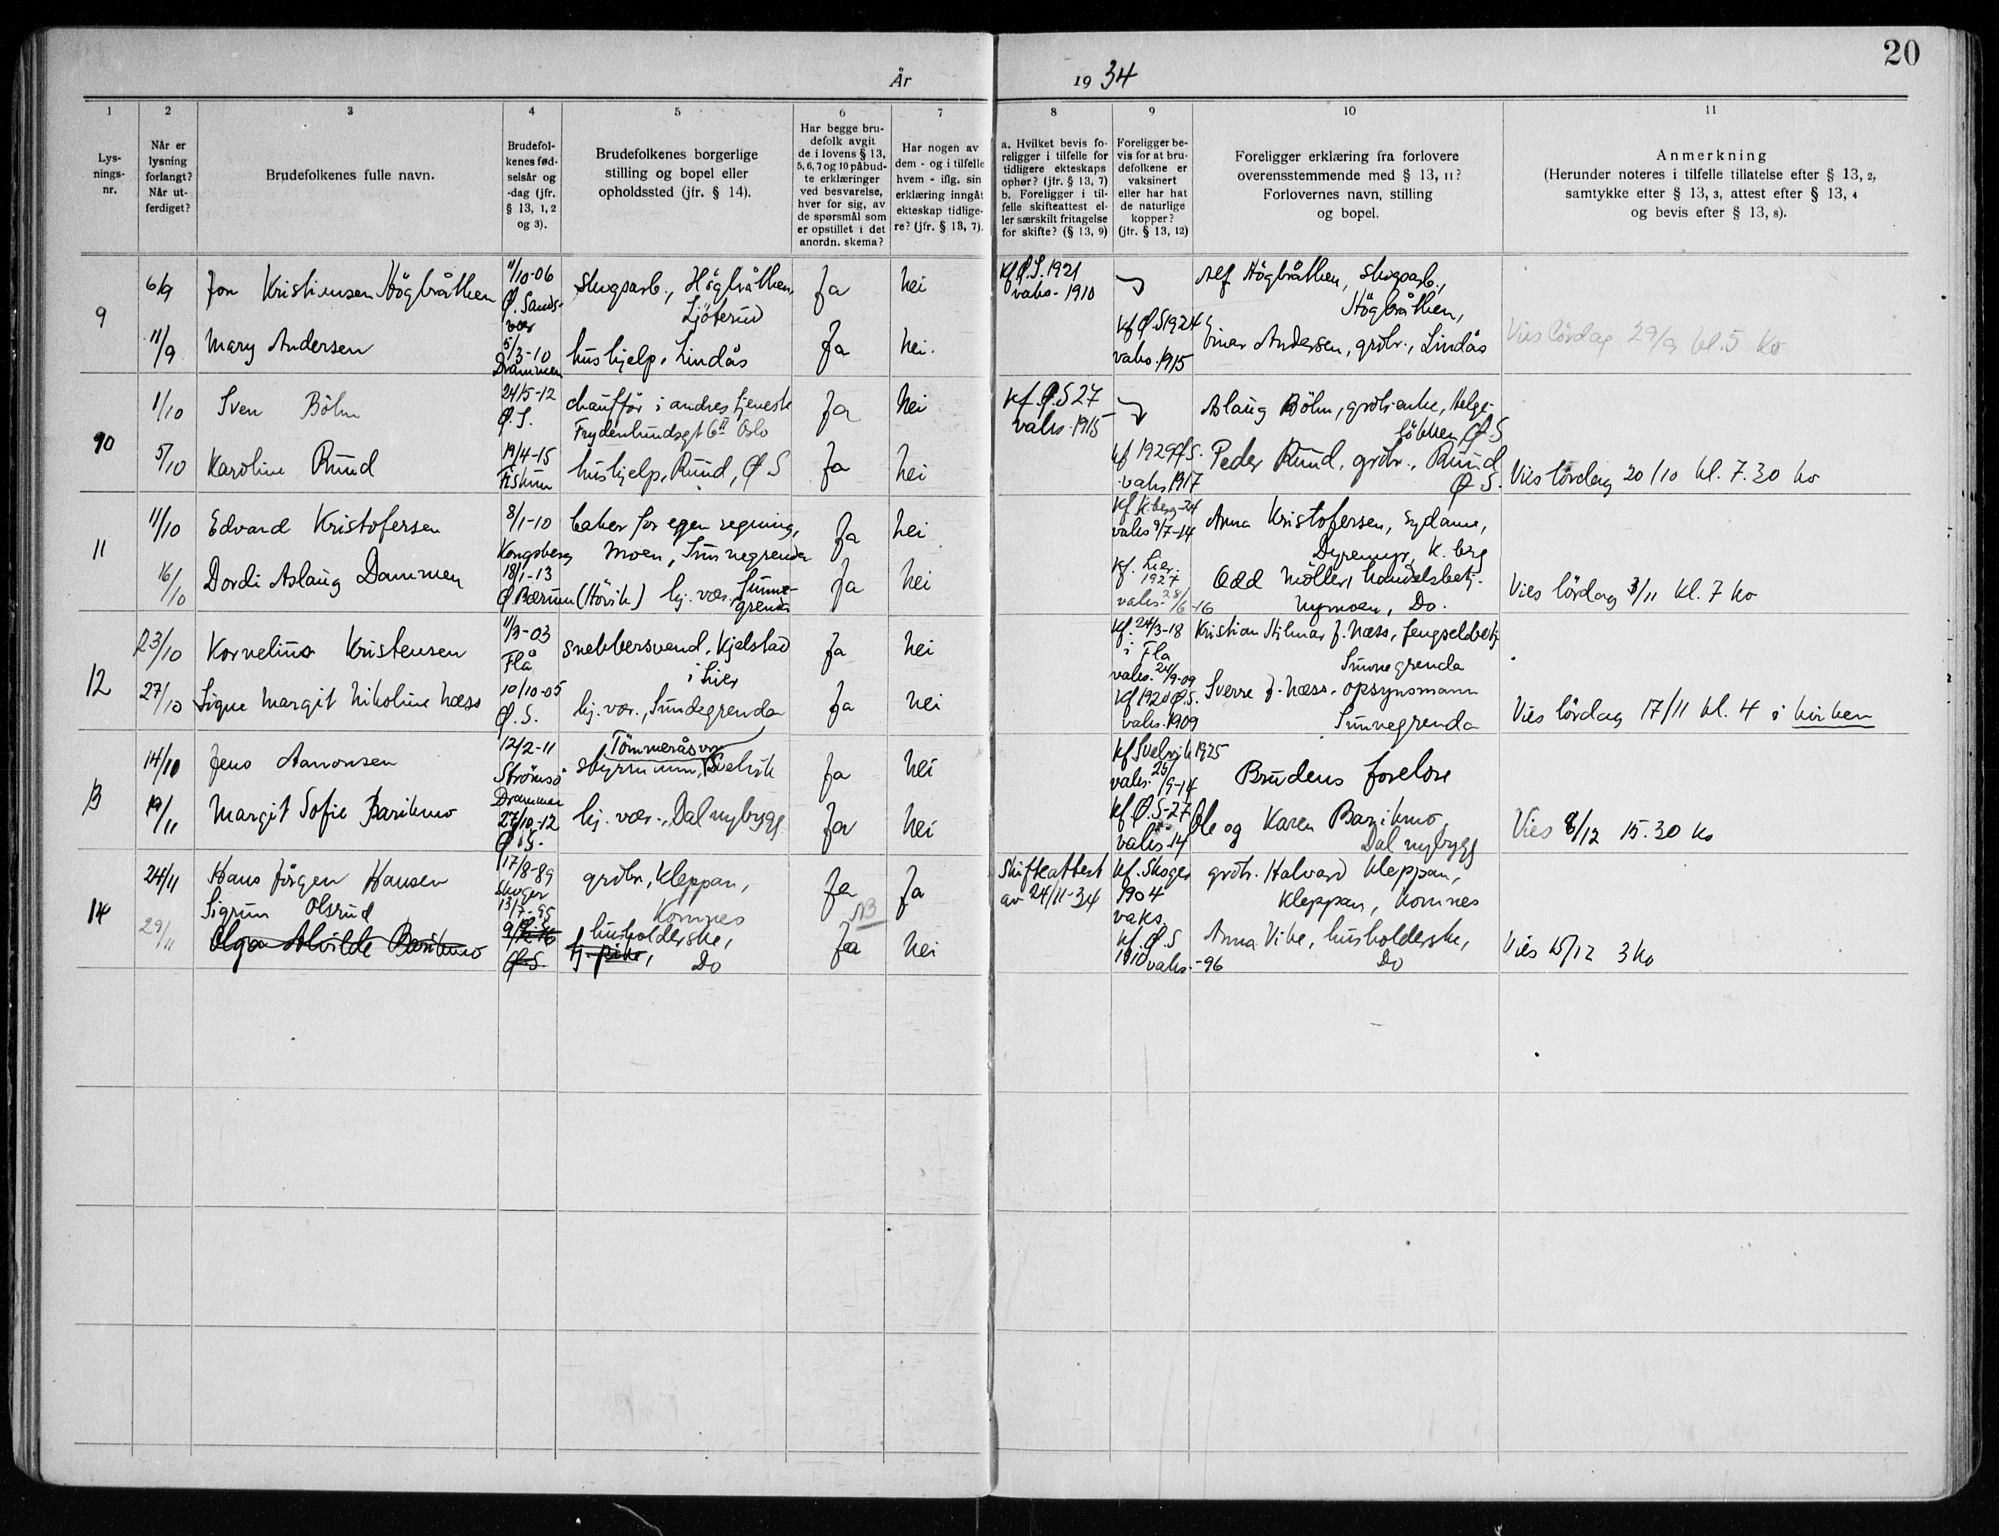 20
År 1934
1 2 3 4 5 6 7 8 9 10 11
Lys-
nings-
nr.
Når er
lysning
forlangt?
Når ut-
ferdiget?
Brudefolkenes fulle navn.
Brudefol-
kenes fød-
selsår og
-dag (jfr.
§ 13, 1, 2
og 3).
Brudefolkenes borgerlige
stilling og bopel eller
opholdssted (jfr. § 14).
Har begge bru-
defolk avgit
de i lovens § 13,
5, 6, 7 og 10 påbud-
te erklæringer
ved besvarelse,
hver for sig, av
de spørsmål som
er opstillet i det
anordn. skema?
Har nogen av
dem - og i tilfelle
hvem - iflg. sin
erklæring inngåt
ekteskap tidlige-
re? (jfr. § 13, 7).
a. Hvilket bevis fo-
religger i tilfelle for
tidligere ekteskaps
ophør? (jfr. § 13, 7)
b. Foreligger i til-
felle skifteattest el-
ler særskilt fritagelse
for skifte? (§ 13, 9)
Foreligger be-
vis for at bru-
defolkene er
vaksinert
eller har hat
de naturlige
kopper?
(jfr. § 13, 12)
Foreligger erklæring fra forlovere
overensstemmende med § 13, 11?
Forlovernes navn, stilling
og bopel.
Anmerkning
(Herunder noteres i tilfelle tillatelse efter § 13, 2,
samtykke efter § 13, 3, attest efter § 13, 4
og bevis efter § 13, 8).
9
6/9 Jon Kristiansen Högbråthen
11/10-06
Ø. Sands-
vær
skogsarb., Högbråthen,
Ljöterud
Ja nei
kf Ø.S. 1921
vaks. 1910
Alf Högbråthen, skogsarb.,
Högbråthen,
11/9 Mary Andersen
5/3-10
Drammen
hushjelp, Lindås
Ja nei.
kf Ø.S 1924
vaks. 1915
Einar Andersen, grdbr., Lindås
Vies lördag 29/9 kl. 5 ko
10
1/10 Sven Böhn
24/5-12
Ø.S.
chauffør i andres tjeneste
Frydenlundsgt 6 II Oslo
Ja nei
kf Ø.S 27
vaks. 1915
Aslaug Böhn, grdb.enke, Helge-
lökken Ø S
5/10 Karoline Ruud
19/4-15
Fiskum
hushjelp, Ruud, Ø S
Ja nei
kf 1929 Ø S.
vaks 1917
Peder Ruud, grdbr., Ruud
Ø S.
Vies lördag 20/10 kl. 7.30 ko
11
11/10 Edvard Kristofersen
8/1-10
Kongsberg
baker for egen regning,
Moen, Sunnegrenda
Ja nei
kf K.berg-24
vaks 9/7-14
Anna Kristofersen, sydame,
Dyremyr, K. berg
16/10 Dordi Aslaug Dammen
18/1-13
Ø Bærum (Hövik)
hj. vær. Sunne-
grenda
Ja nei
kf. Lier
1927
vaks. 28/6-16
Odd Möller, handelsbetj.
Nymoen, Do.
Vies lördag 3/11 kl. 7 ko
12
23/10 Kornelius Kristensen
11/3-03
Flå
snekkersvend, Kjelstad
i Lier
Ja nei
kf. 24/3-18
i Fla
vaks. 24/9-09
Kristian Hilmar J. Næss, fengselsbetj.
Sunnegrenda
27/10 Signe Margit Nikoline Næss
10/10-05
Ø.S.
hj. vær., Sundegrenda
Ja nei
kf 1920 Ø.S.
vaks. 1909
Sverre J. Næss, opsynsmann
Sunnegrenda
Vies lördag 17/11 kl. 4 i kirken
13
14/10 Jens Aamonsen
12/2-11
Strömsö
Drammen
Tömmeråsvn
styrmann, Svelvik
Ja nei
kf Svelvik 1925
vaks. 25/9-14
Brudens forelore
19/11 Margit Sofie Barikmo
27/10-12
Ø.S.
hj. vær., Dal nybygg
Ja nei
kf Ø.S-27
vaks 14
Ole og Karen Barikmo,
Dal nybygg
Vies 8/12 15.30 ko
14
24/11 Hans Jörgen Hansen
17/8-89
Skoger
grdbr, Kleppan,
Komnes
Ja Ja
Skifteattest
av 24/11-34
kf. Skoger
1904
vaks
grdbr. Halvard Kleppan,
Kleppan, Komnes
Sigrun Olsrud
13/7-95
29/11 Olga Alvilde Barikmo
Ø.S.
husholderske,
hj. pike, Do
NB
Ja nei
kf. Ø.S
1910 vaks. -96
Anna Vike, husholderske,
Do
Vies 15/12 3 ko